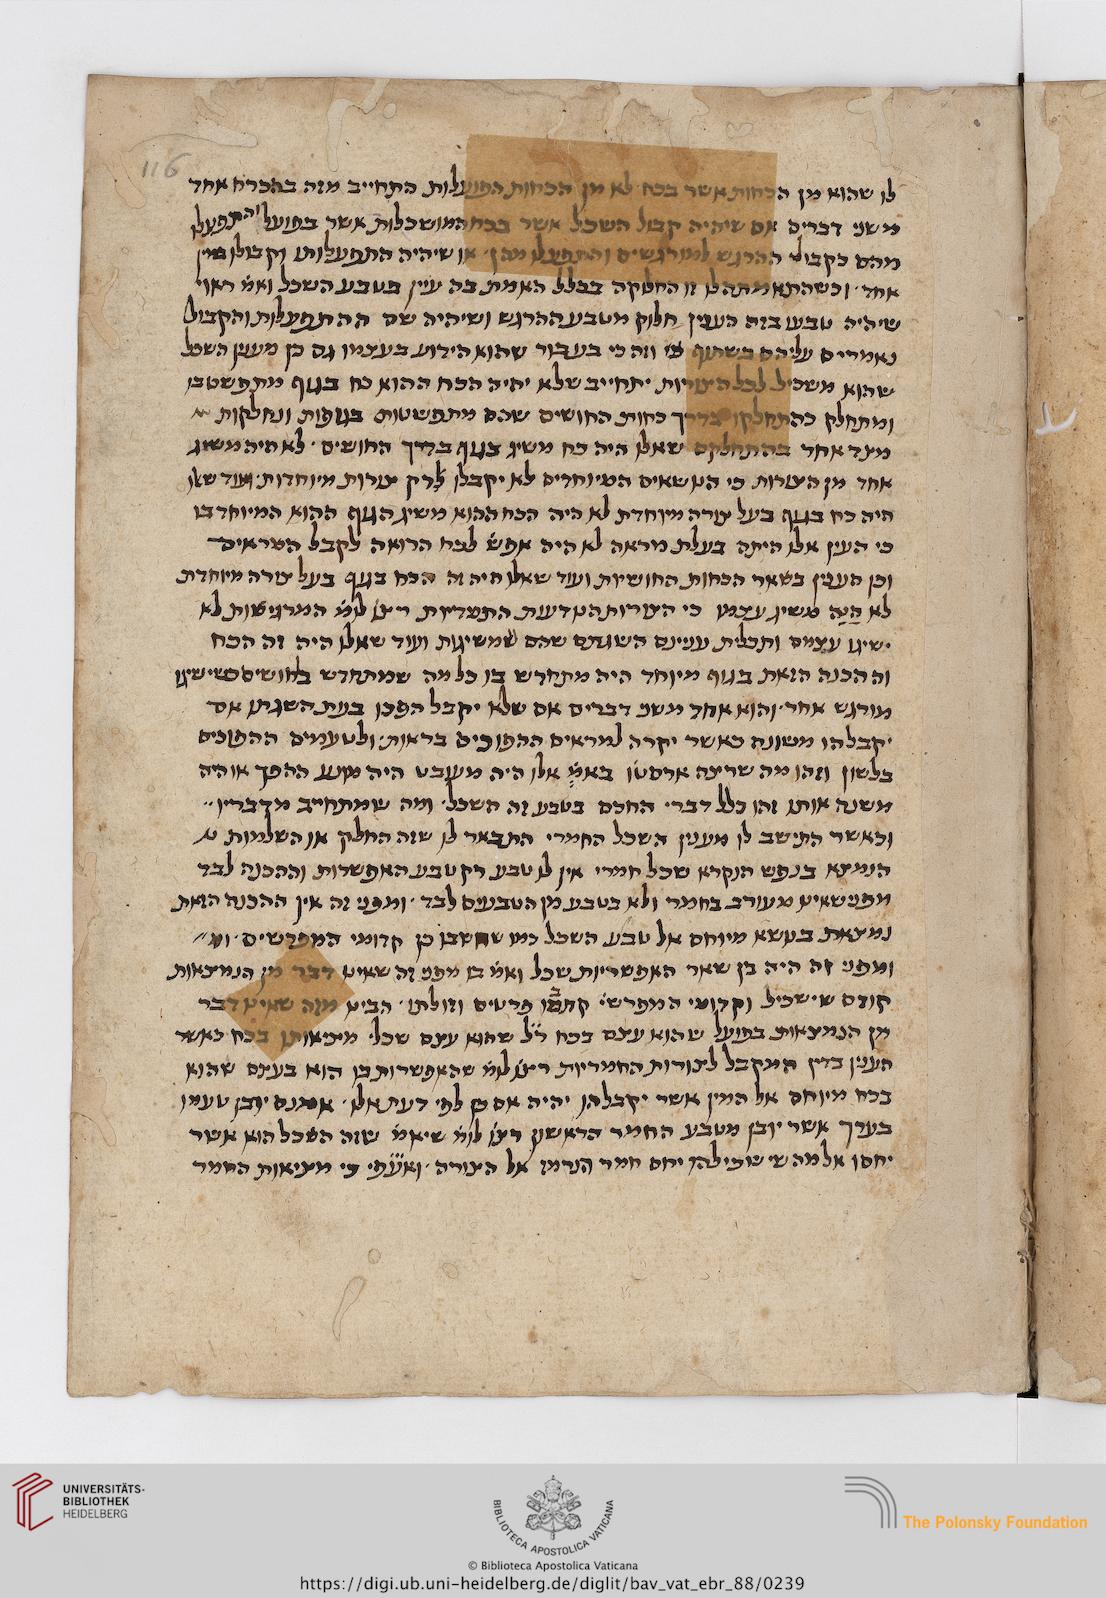 116
לו שהוא מן הכחות אשר בכח לא מן הכחות הפועלות התחייב מזה בהכרח אחד
משני דברים אם שיהיה קבול השכל אשר בכח המושכלות אשר בפועל והתפעלו
מהם כקבול ההרגש למורגשים והתפעלו מהן או שיהיה התפעלותו וקבולו מין
אחד וכשהתאמתה לו זו החלוקה בכלל האמת בה עיין בטבע השכל ואמ׳ ראוי
שיהיה טבעו בזה הענין חלוק מטבע ההרגש ושיהיה שם ההתפעלות והקבול
נאמרים עליהם בשתוף וזה כי בעבור שהוא הידוע בעצמו גם כן מענין השכל
שהוא משכיל לכל הצורות יתחייב שלא יהיה הכח ההוא כח בגוף מתפשט בו
ומתחלק כהתחלקו בדרך כחות החושים שהם מתפשטות בגופות ונחלקות
מצד אחד בהתחלקם שאלו היה כח משיג בגוף בדרך החושים לא היה משיג
אחד מן הצורות כי הנושאים המיוחדים לא יקבלו רק צורות מיוחדות ועוד שאלו
היה כח בגוף בעל צורה מיוחדת לא היה הכח ההוא משיג הגוף ההוא המיוחד בו
כי העין אלו היתה בעלת מראה לא היה אפש׳ לכח הרואה לקבל המראים
וכן הענין בשאר הכחות החושיות ועוד שאלו היה זה הכח בגוף בעל צורה מיוחדת
לא היה משיג עצמו כי הצורות החמריות רצו׳ לומ׳ המרגישות לא
ישיגו עצמם ותכלית ענינם השגתם שהם משיגות ועוד שאלו היה זה הכח
וההכנה הזאת בגוף מיוחד היה מתחדש בו כל מה שמתחדש בחושים כשישיגו
מורגש אחד והוא אחד משני דברים אם שלא יקבל הפכו בעת השגתו אם
יקבלהו משונה כאשר יקרה למראים ההפוכים בראות ולטעמים ההפוכים
בלשון וזהו מה שרצה ארסטו באמ׳ אלו היה מעורב היה מונע ההפך או היה
משנה אותו זהו כלל דברי החכם בטבע זה השכל ומה שמתחייב מדבריו
וכאשר התישב לו מענין השכל החמרי התבאר לו שזה החלק או השלמות
הנמצא בנפש הנקרא שכל חמרי אין לו טבע רק טבע האפשרות וההכנה לבד
מפני שאינו מעורב בחמר ולא בטבע מן הטבעים לבד ומפני זה אין ההכנה הזאת
נמצאת בנושא מיוחס אל טבע השכל כמו שחשבו כן קדומי המפרשים
ומפני זה היה בן שאר האפשריות שכל ואמ׳ בו מפני זה שאינו דבר מן הנמצאות
קודם שישכיל וקדומי המפרשי׳ קתבו פרטים וזולתו הבינו מזה שאינו דבר
מן הנמצאות בפועל שהוא עצם בכח ר״ל שהוא עצם שכלי מציאותו בכח כאשר
הענין בדין המקבל לצורות החמריות רצו׳ לומ׳ שהאפשרות בו הוא בעצם שהוא
בכח מיוחס אל המין אשר יקבלהו יהיה אם כן לפי דעת אלו אמנם יובן טעמו
בערך אשר יובן מטבע החמר הראשון רצו׳ לומ׳ שיאמ׳ שזה השכל הוא אשר
יחסו אל מה שישכילהו יחס חמר הנרמז אל הצורה ואע״פי כי מציאות החמר
UNIVERSITÄTS-
BIBLIOTHEK
HEIDELBERG
BIBLIOTECA APOSTOLICA VATICANA
The Polonsky Foundation
© Biblioteca Apostolica Vaticana
https://digi.ub.uni-heidelberg.de/diglit/bav_vat_ebr_88/0239